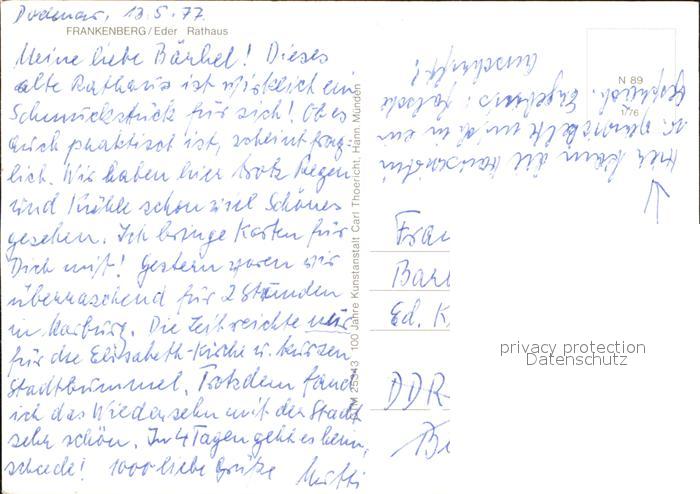 Dodenau, 13.5.77
FRANKENBERG/Eder Rathaus
Meine liebe Bärbel! Dieses
alte Rathaus ist wirklich ein
Schmuckstück für sich! Ob es
auch praktisch ist, scheint frag-
lich. Wir haben hier trotz Regen
und Kühle schon viel Schönes
gesehen. Ich bringe Karten für
Dich mit! Gestern waren wir
überraschend für 2 Stunden
in Marburg. Die Zeit reichte nur
für die Elisabeth-Kirche u. kurzen
Stadtbummel. Trotzdem fand
ich das Wiedersehn mit der Stadt
sehr schön. In 4 Tagen geht es heim,
schade! 1000 liebe Grüße Mutti
ATM 25343 100 Jahre Kunstanstalt Carl Thoericht, Hann. Münden
N 89
1/76
Hier kam die
in
Ergebnis: falsche
Anschrift!
Frau
Barb
Ed. K
DDR-
privacy protection
Datenschutz